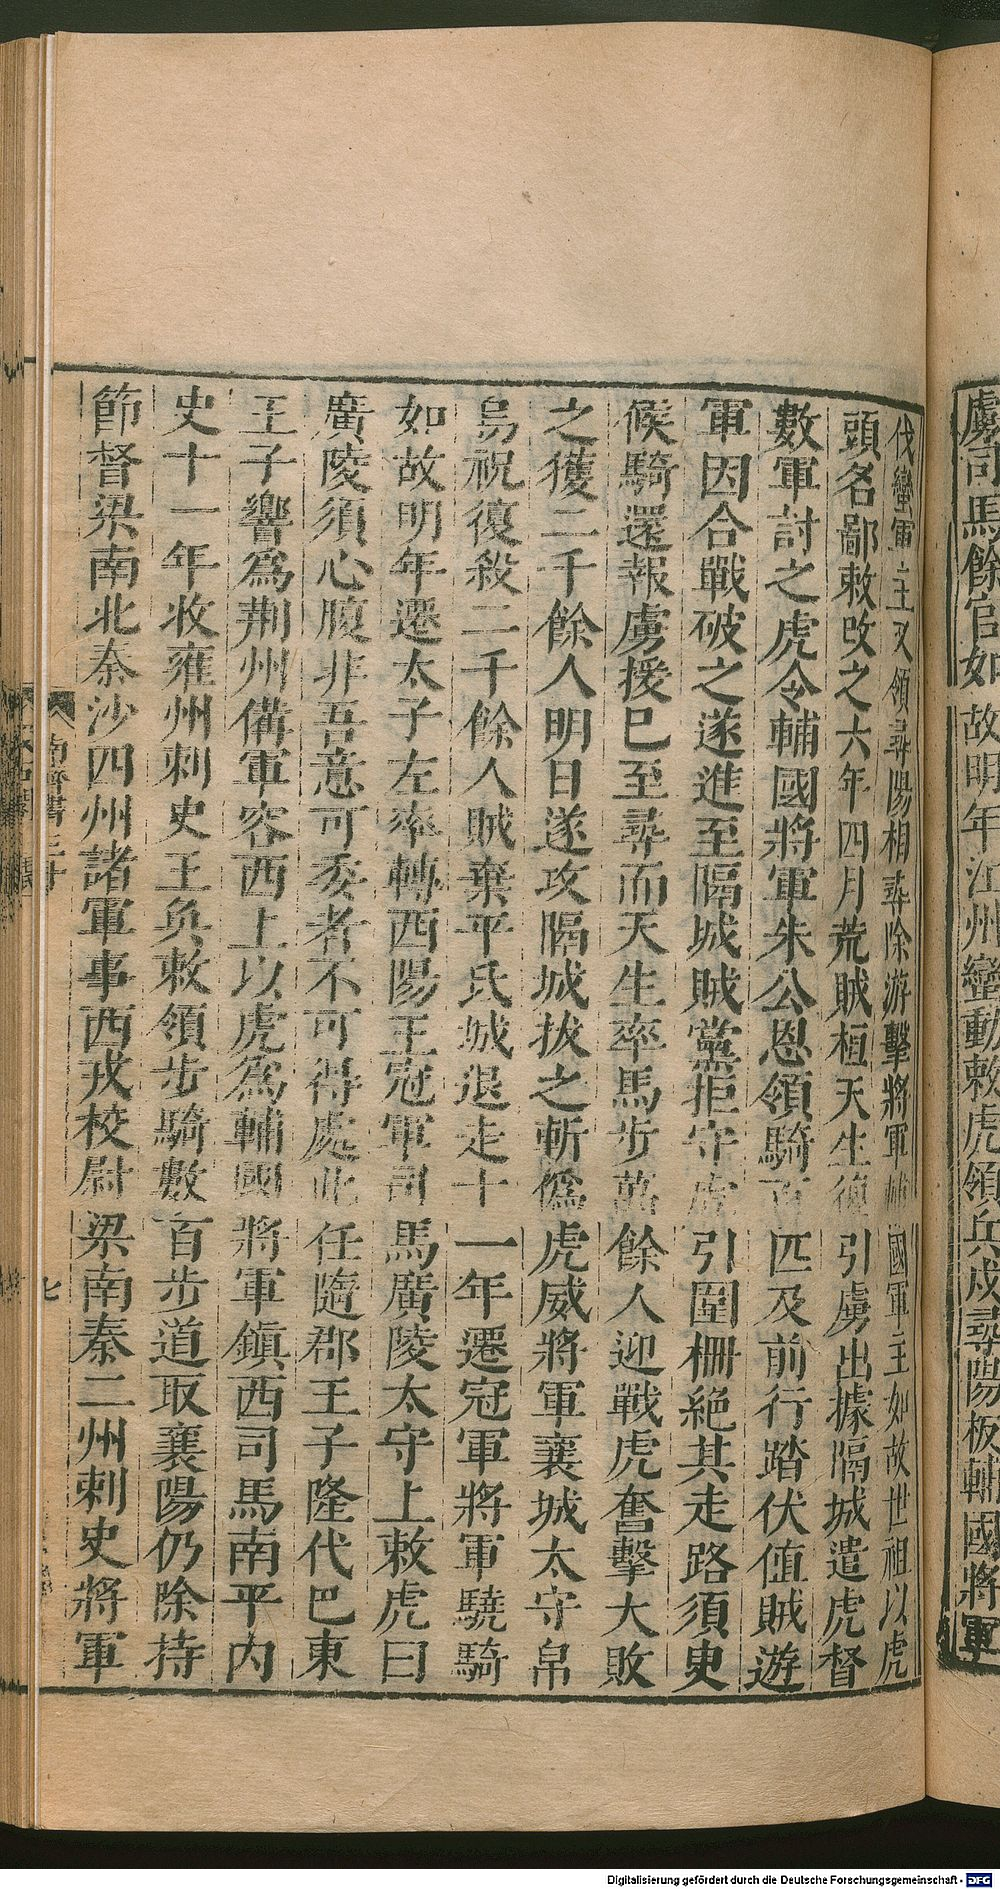 虜司馬餘官如故明年江州蠻動敕虎領兵戍尋陽板輔國將軍
伐蠻軍主又領尋陽相尋除游擊將軍輔國軍主如故世祖以虎
頭名鄙敕改之六年四月荒賊桓天生復引虜出據隔城遣虎督
數軍討之虎令輔國將軍朱公恩領騎百匹及前行踏伏值賊遊
軍因合戰破之遂進至隔城賊黨拒守虎引圍柵絕其走路須臾
候騎還報虜援已至尋而天生率馬步萬餘人迎戰虎奮擊大敗
之獲二千餘人明日遂攻隔城拔之斬僞虎威將軍襄城太守帛
烏祝復殺二千餘人賊棄平氏城退走十一年遷冠軍將軍驍騎
如故明年遷太子左率轉西陽王冠軍司馬廣陵太守上敕虎曰
廣陵須心腹非吾意可委者不可得處此任隨郡王子隆代巴東
王子響爲荆州備軍容西上以虎爲輔國將軍鎮西司馬南平內
史十一年收雍州刺史王奐敕領步騎數百步道取襄陽仍除持
節督梁南北秦沙四州諸軍事西戎校尉梁南秦二州刺史將軍
南齊書三十
七
Digitalisierung gefördert durch die Deutsche Forschungsgemeinschaft - DFG